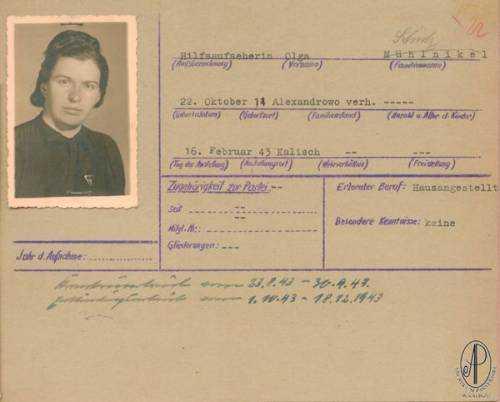 Hilfsaufseherin Olga Mühlnikel
(Dienstbezeichnung) (Vorname) (Familienname)
22. Oktober 14 Alexandrowo verh. -----
(Geburtsdatum) (Geburtsort) (Familienstand) (Anzahl u. Alter d. Kinder)
16. Februar 43 Kalisch -- ---
(Tag der Einstellung) (Einstellungsort) (Wehrverhältnis) (Freistellung)
Zugehörigkeit zur Partei -- Erlernter Beruf: Hausangestellt
Seit --
Mitgl. Nr.: -- Besondere Kenntnisse: keine
Gliederungen: ---
Jahr d. Aufnahme:
vom 23.8.43 - 30.9.43.
vom 1.10.43 - 18.12.1943
AP